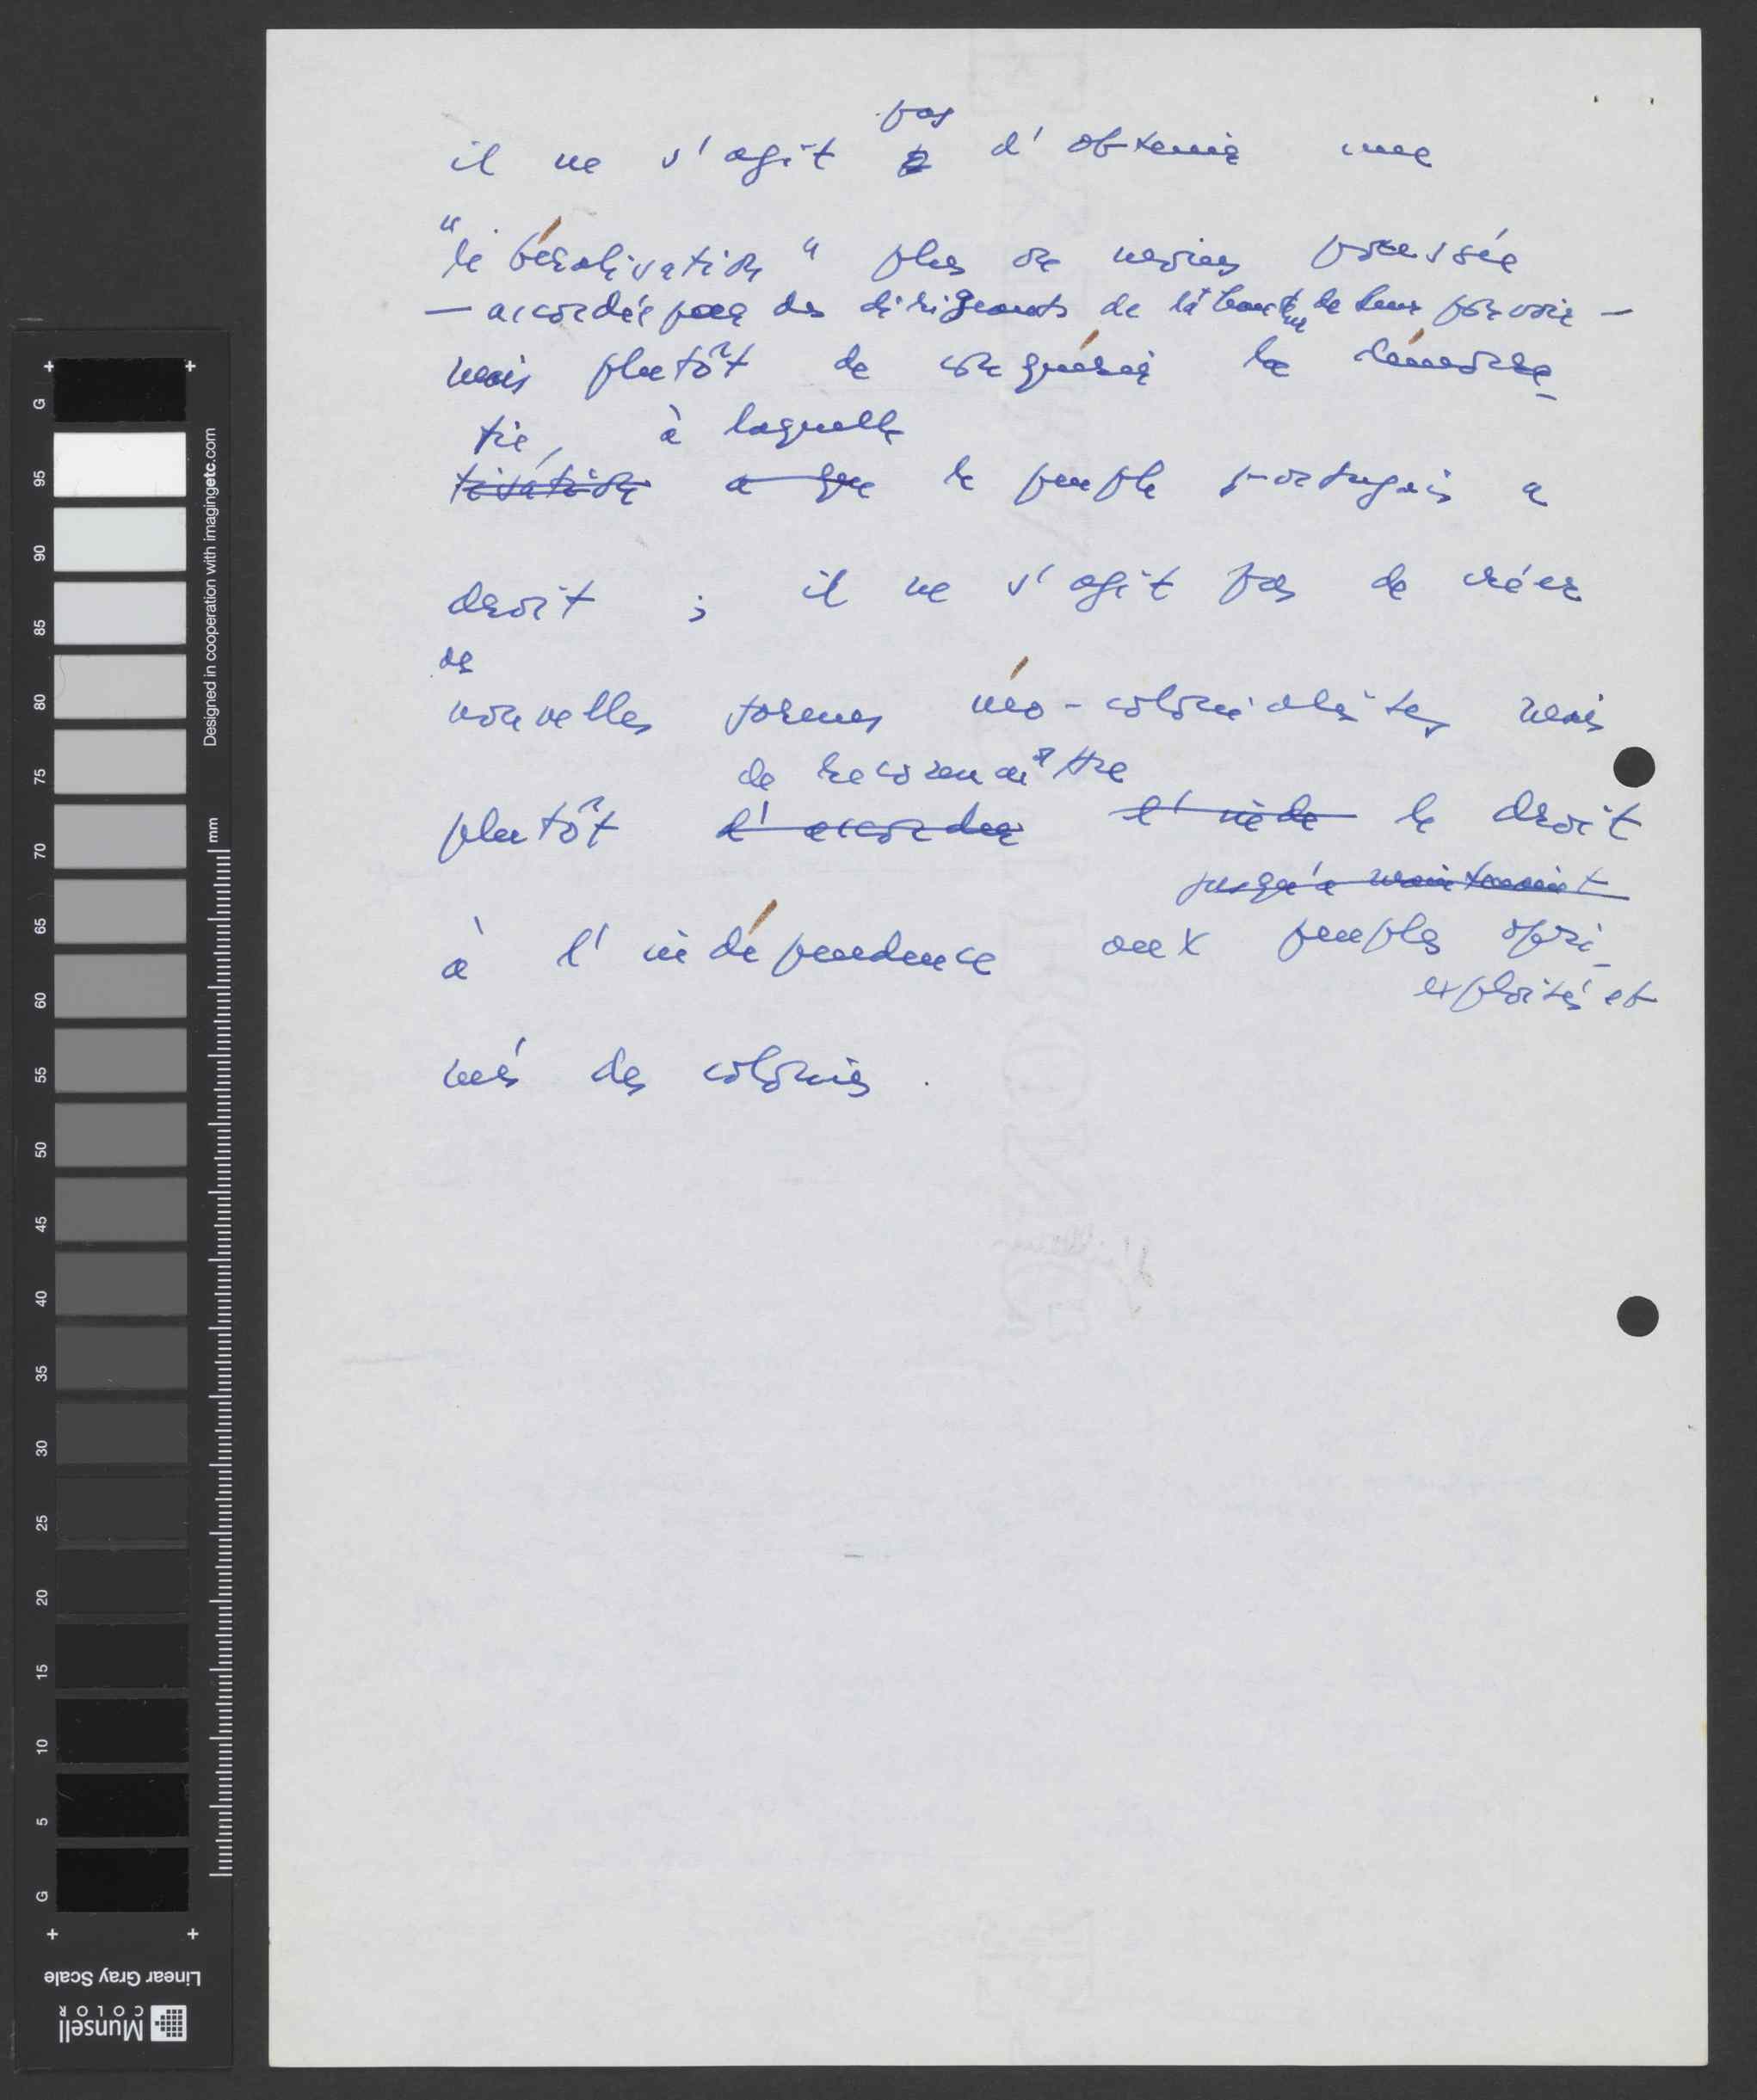 pas
il ne s'agit d'obtenir une
"libéralisation" plus ou moins poussée
— accordée par des dirigeants de la hauteur de leur pouvoir —
mais plutôt de conquérir la démocra-
tie, à laquelle
tisation a que le peuple portugais a
droit ; il ne s'agit pas de créer
de
nouvelles formes néo-colonialistes mais
de reconnaître
plutôt d'accorder l'inde le droit
jusqu'à maintenant
à l'indépendence aux peuples opri-
exploités et
més des colonies.
G
95
90
85
80
75
70
65
60
55
50
45
40
35
30
25
20
15
10
5
G
mm
Designed in cooperation with imagingetc.com
Linear Gray Scale
Munsell
COLOR